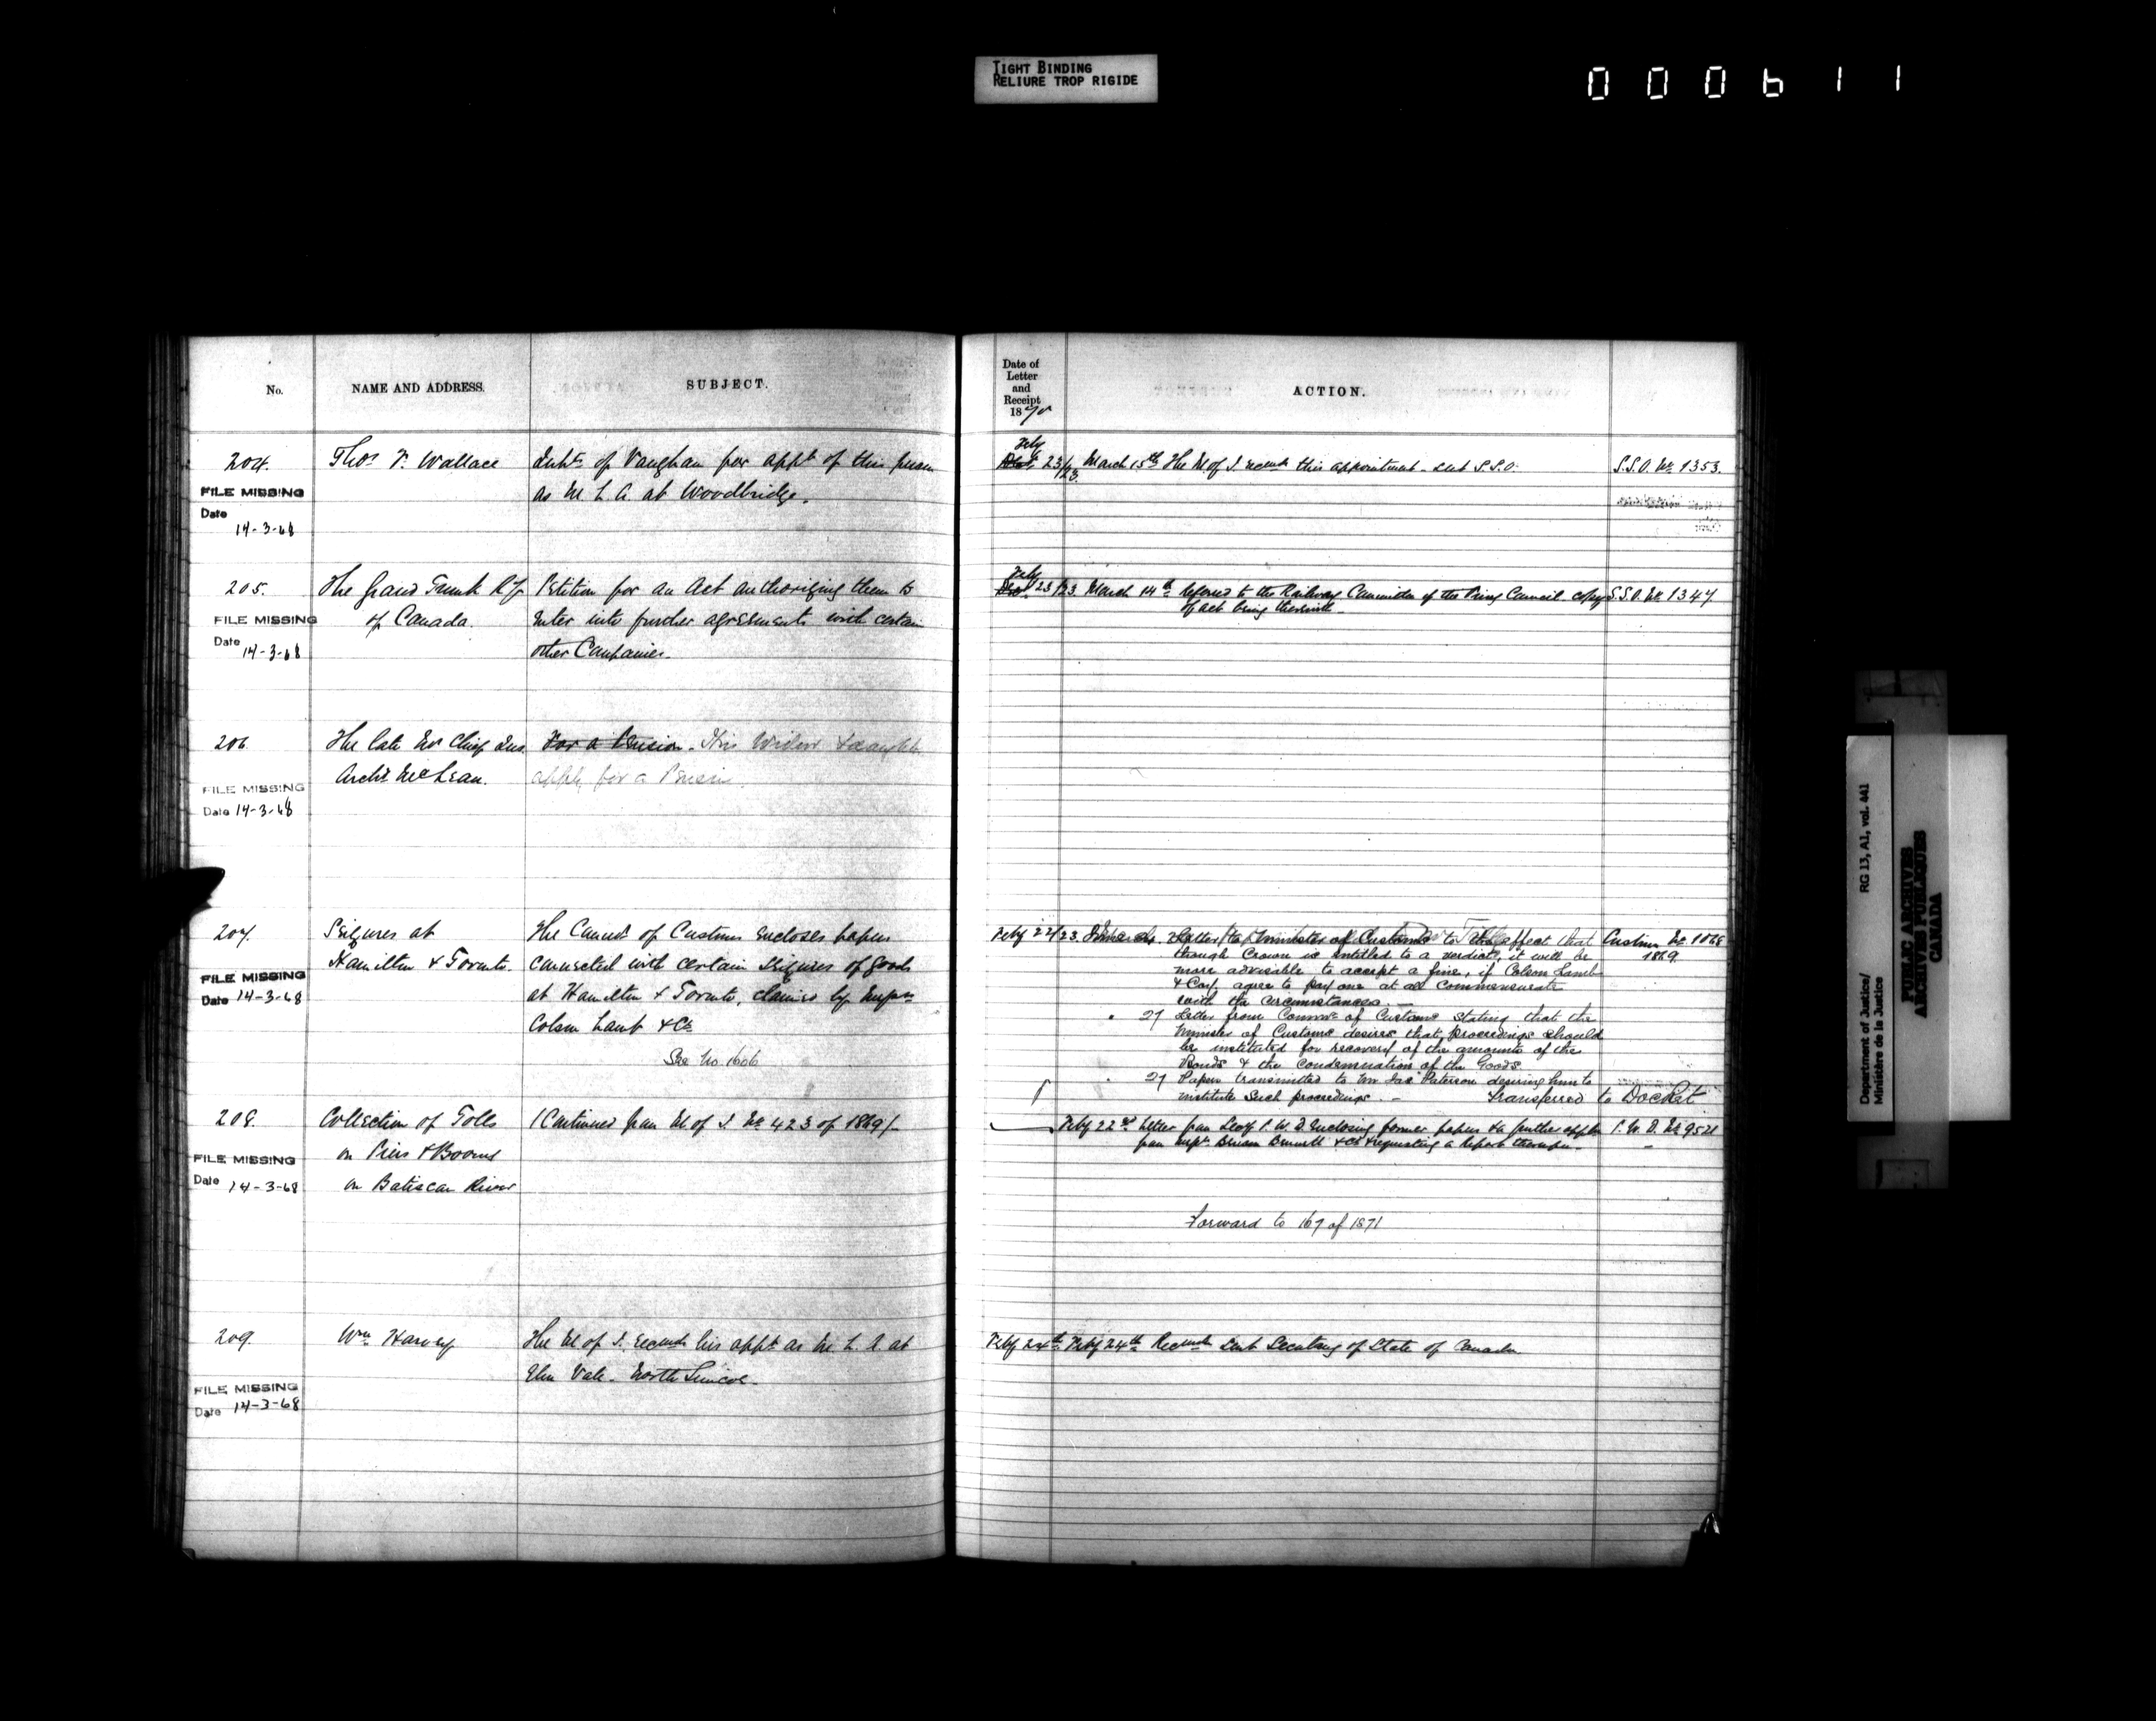 TIGHT BINDING
RELIURE TROP RIGIDE
000611
No.
NAME AND ADDRESS.
SUBJECT.
Date of
Letter
and
Receipt
1870
ACTION.
204.
Thos V. Wallace
Inhts of Vaughan for appt of this person
as M. L. A. at Woodbridge.
FILE MISSING
Date
14-3-68
Feby
23/23.
March 15th The M of J. recomds this appointment - sent S.S.O.
S.S.O. No 1353.
205.
The Grand Trunk Ry
of Canada.
Petition for an Act authorizing them to
enter into further agreements with certain
other Companies.
FILE MISSING
Date
14-3-68
Feby
23/23.
March 14th referred to the Railway Committee of the Privy Council - copy
of act being therewith -
S.S.O. No 1347.
206
The late Mr Chief Jus.
Archd McLean.
For a Pension. His Widow & daughter
apply for a Pension.
FILE MISSING
Date 14-3-68
207.
Seizures at
Hamilton & Toronto.
The Commr of Customs encloses papers
connected with certain seizures of goods
at Hamilton & Toronto, claimed by Messrs
Colson Lamb & Co
See No. 1606
FILE MISSING
Date 14-3-68
Feby 22/23.
Letter to Minister of Customs to the effect that
though Crown is entitled to a verdict, it will be
more advisable to accept a fine, if Colson Lamb
& Coy. agree to pay one at all commensurate
with the circumstances. —
" 27 Letter from Commr of Customs stating that the
Minister of Customs desires that proceedings should
be instituted for recovery of the amounts of the
Bonds & the condemnation of the Goods.
" 27 Papers transmitted to Mr Jas Paterson desiring him to
institute such proceedings. —
Transferred to Docket
Customs No 1068
1869.
208.
Collection of Tolls
on Piers & Booms
on Batiscan River
(Continued from M of J. No 423 of 1869)-
FILE MISSING
Date 14-3-68
Feby 22nd Letter from Secy P. W. D. enclosing former papers & further appln
from & Co & requesting a report thereupon -
P. W. D. No 9521
Forward to 167 of 1871
209.
Wm Harvey
The M of J. recomds his appt as M. L. A. at
Elm Vale - North Simcoe -
FILE MISSING
Date 14-3-68
Feby 24th
Feby 24th Recomdn sent Secretary of State of Canada
Department of Justice/
Ministère de la Justice
RG 13, A1, vol. 441
PUBLIC ARCHIVES
ARCHIVES PUBLIQUES
CANADA